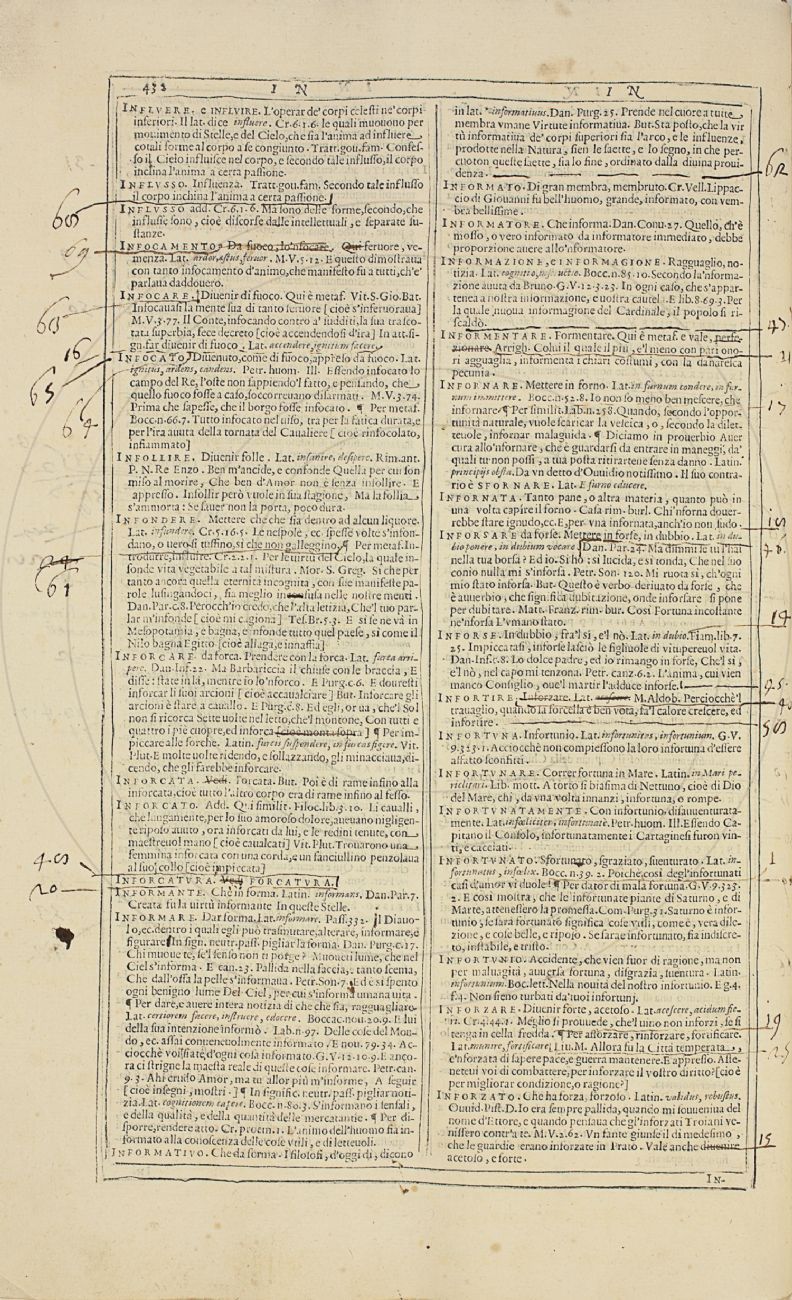 432 I N
INFLVERE. e INFLVIRE. L'operar de' corpi celesti ne' corpi
inferiori. Il lat. dice influere. Cr. 6. 1. 6. le quali muouono per
mouimento di Stelle, e del Cielo, che fia l'anima ad influere
cotali forme al corpo a se congiunto. Tratt. gou. fam. Confes-
so il Cielo influisce nel corpo, e secondo tale influsso, il corpo
inclina l'anima a certa passione.
INFLVSSO. Influenza. Tratt. gou. fam. Secondo tale influsso
il corpo inchina l'anima a certa passione.
INFLVSSO add. Cr. 6. 1. 6. Ma sono delle forme, secondo, che
influsse sono, cioè discorse dalle intellettuali, e separate su-
stanze.
INFOCAMENTO. Da fuoco, lo'nfocare. Qui feruore, ve-
menza. Lat. ardor, æstus, feruor. M. V. 5. 12. E questo dimostraua
con tanto infocamento d'animo, che manifesto fu a tutti, ch'e'
parlaua daddouero.
INFOCARE. Diuenir di fuoco. Qui è metaf. Vit. S. Gio. Bat.
Infocauasi la mente sua di tanto feruore [cioè s'inferuoraua]
M. V. 3. 77. Il Conte, infocando contro a' sudditi, la sua trasco-
tata superbia, fece decreto [cioè accendendosi d'ira] In att. si-
gn. far diuenir di fuoco. Lat. accendere, ignitum facere.
INFOCATO. Diuenuto, come di fuoco, appreso da fuoco. Lat.
ignitus, ardens, candens. Petr. huom. Ill. Essendo infocato lo
campo del Re, l'oste non sappiendo'l fatto, e pensando, che
quello fuoco fosse a caso, soccorreuano disarmati. M. V. 3. 74.
Prima che sapesse, che il borgo fosse infocato. ¶ Per metaf.
Bocc. n. 66. 7. Tutto infocato nel viso, tra per la fatica durata, e
per l'ira auuta della tornata del Caualiere [cioè rinfocolato,
infiammato]
INFOLLIRE. Diuenir folle. Lat. insanire, desipere. Rim. ant.
P. N. Re Enzo. Ben m'ancide, e confonde Quella per cui son
miso al morire, Che ben d'Amor non è senza infollire. E
appresso. Infollir però vuole in sua stagione, Ma la follia
s'ammorta: Se sauer' non la porta, poco dura.
INFONDERE. Mettere che che sia dentro ad alcun liquore.
Lat. infundere. Cr. 5. 16. 5. Le nespole, ec. spesse volte s'infon-
dano, o uero si tuffino, si che non galleggino. ¶ Per metaf. In-
trodurre, instillare. Cr. 2. 2. 1. Per le virtù del Cielo, la quale in-
fonde vita vegetabile a tal mistura. Mor. S. Greg. Si che per
tanto ancora quella eternità incognita, con sue manifeste pa-
role lusingandoci, sia meglio infusa nelle nostre menti.
Dan. Par. c. 8. Perocch'io credo, che l'alta letizia, Che'l tuo par-
lar m'infonde [cioè mi cagiona] Tes. Br. 5. 3. E si se ne và in
Mesopotamia, e bagna, e infonde tutto quel paese, si come il
Nilo bagna Egitto. [cioè allaga, e innaffia]
INFORCARE. da forca. Prendere con la forca. Lat. furca arri-
pere. Dan. Inf. 22. Ma Barbariccia il chiuse con le braccia, E
disse: state in là, mentre io lo'nforco. E Purg. c. 6. E douresti
inforcar li suoi arcioni [cioè accaualciare] But. Inforcare gli
arcioni è stare a cauallo. E Purg. c. 8. Ed egli, or ua, che'l Sol
non si ricorca Sette uolte nel letto, che'l montone, Con tutti e
quattro i piè cuopre, ed inforca [cioè monta sopra] ¶ Per im-
piccare alle forche. Latin. furcis suspendere, in furcas figere. Vit.
Plut. E molte uolte ridendo, e sollazzando, gli minacciaua, di-
cendo, che gli farebbe inforcare.
INFORCATA. Vedi. Forcata. But. Poi è di rame infino alla
inforcata, cioè tutto l'altro corpo era di rame infino al fesso.
INFORCATO. Add. Qui similit. Filoc. lib. 3. 10. Li caualli,
che lungamente, per lo suo amoroso dolore, aueuano nigligen-
te riposo auuto, ora inforcati da lui, e le redini tenute, con
maestreuol mano [cioè caualcati] Vit. Plut. Trouarono una
femmina inforcata con una corda, e un fanciullino penzolaua
al suo collo [cioè impiccata]
INFORCATVRA. Vedi FORCATVRA.
INFORMANTE. Che informa. Latin. informans. Dan. Par. 7.
Creata fu la uirtù informante In queste Stelle.
INFORMARE. Dar forma. Lat. informare. Pass. 332. Il Diauo-
lo, ec. dentro i quali egli può trasmutare, alterare, informare, e
figurare. In sign. neutr. pass. pigliar la forma. Dan. Purg. c. 17.
Chi muoue te, se'l senso non ti porge? Muoueti lume, che nel
Ciel s'informa. E can. 23. Pallida nella faccia, tanto scema,
Che dall'ossa la pelle s'informana. Petr. Son. 7. Ed è si spento
ogni benigno lume Del Ciel, per cui s'informa umana uita.
¶ Per dare, e auere intera notizia di che che sia, ragguagliare.
Lat. certiorem facere, instruere, edocere. Boccac. nou. 20. 9. E lui
della sua intenzione informò. Lab. n. 97. Delle cose del Mon-
do, ec. assai conueneuolmente informato. E nou. 79. 34. Ac-
ciocchè voi siate, d'ogni cosa informato. G. V. 12. 10. 9. E anco-
ra ci strigne la maestà reale di queste cose informare. Petr. can.
9. 3. Ahi crudo Amor, ma tu allor più m'informe, A seguir
[cioè insegni, mostri.] ¶ In signific. neutr. pass. pigliar noti-
zia. Lat. cognitionem capere. Bocc. n. 80. 3. S'informano i sensali,
e della qualità, e della quantità delle mercatantie. ¶ Per di-
sporre, rendere atto. Cr. proem. 1. L'animo dell'huomo sia in-
formato alla conoscenza delle cose vtili, e dilletteuoli.
INFORMATIVO. Che da forma. I filosofi, d'oggi dì, dicono
60
69
60
16
65
64
61
4.
20
I N
in lat. informatiuus. Dan. Purg. 25. Prende nel cuore a tutte
membra vmane Virtute informatiua. But. Sta posto, che la vir
tù informatiua de' corpi superiori sia l'arco, e le influenze,
prodotte nella Natura, sien le saette, e lo segno, in che per-
cuoton queste saette, sia lo fine, ordinato dalla diuina proui-
denza.
INFORMATO. Di gran membra, membruto. Cr. Vell. Lippac-
cio di Giouanni fu bell'huomo, grande, informato, con vem-
bra bellissime.
INFORMATORE. Che informa. Dan. Conu. 27. Quello, ch'è
mosso, o uero informato da informatore immediato, debbe
proporzione auere allo'nformatore.
INFORMAZIONE, e INFORMAGIONE. Ragguaglio, no-
tizia. Lat. cognitio, institutio. Bocc. n. 85. 10. Secondo la'nforma-
zione auuta da Bruno. G. V. 12. 3. 23. In ogni caso, che s'appar-
tenea a nostra informazione, e uostra cautela. E lib. 8. 69. 3. Per
la quale nuoua informagione del Cardinale, il popolo si ri-
scaldò.
INFORMENTARE. Formentare. Qui è metaf. e vale, perfe-
zionare. Arrigh. Colui il quale il più, e'l meno con pari ono-
ri agguaglia, informenta i chiari costumi, con la danaresca
pecunia.
INFORNARE. Mettere in forno. Lat. in furnum condere, in fur-
num immittere. Bocc. n. 52. 8. Io non so meno ben mescere, che
infornare ¶ Per similit. Lab. n. 258. Quando, secondo l'oppor-
tunità naturale, vuole scaricar la vescica, o, secondo la dilet-
teuole, infornar malaguida. ¶ Diciamo in prouerbio Auer
cura allo'nfornare, che è guardarsi da entrare in maneggi, da'
quali tu non possi, a tua posta ritirartene senza danno. Latin.
principijs obsta. Da vn detto d'Ouuidio notissimo. Il suo contra-
rio è SFORNARE. Lat. E furno educere.
INFORNATA. Tanto pane, o altra materia, quanto può in
una volta capire il forno. Casa rim. burl. Chi'nforna douer-
rebbe stare ignudo, ec. E, per vna infornata, anch'io non sudo.
INFORSARE da forse. Mettere in forse, in dubbio. Lat. in du-
bio ponere, in dubium vocare. Dan. Par. 24. Ma dimmi se tu l'hai
nella tua borsa? Ed io. Sì hò: sì lucida, e sì tonda, Che nel suo
conio nulla mi s'inforsa. Petr. Son. 120. Mi ruota si, ch'ogni
mio stato inforsa. But. Questo è verbo deriuato da forse, che
è auuerbio, che significa dubitazione, onde inforsare si pone
per dubitare. Matt. Franz. rim. bur. Così Fortuna incostante
ne'nforsa L'vmano stato.
INFORSE. In dubbio, fra'l sì, e'l nò. Lat. in dubio. Fiam. lib. 7.
25. Impiccatasi, inforse lasciò le figliuole di vituperevol vita.
Dan. Inf. c. 8. Lo dolce padre, ed io rimango in forse, Che'l sì,
e'l nò, nel capo mi tenzona. Petr. canz. 6. 2. L'anima, cui vien
manco Consiglio, oue'l martir l'adduce inforse.
INFORTIRE. Inforzare. Lat. M. Aldob. Perciocchè'l
trauaglio, quando la forcella è ben vota, fa'l calore crescere, ed
infortire.
INFORTVNA. Infortunio. Lat. infortunitas, infortunium. G. V.
9. 323. 1. Acciocchè non compiessono la loro infortuna d'essere
affatto sconfitti.
INFORTVNARE. Correr fortuna in Mare. Latin. in Mari pe-
riclitari. Lib. mott. A torto si biasima di Nettuno, cioè di Dio
del Mare, chi, da vna volta innanzi, infortuna, o rompe.
INFORTVNATAMENTE. Con infortunio. disauuenturata-
mente. Lat. infœliciter, infortunatè. Petr. huom. Ill. Essendo Ca-
pitano il Consolo, infortunatamente i Cartaginesi furon vin-
ti, e cacciati.
INFORTVNATO. Sfortunato, sgraziato, suenturato. Lat. in-
fortunatus, infœlix. Bocc. n. 39. 2. Poiche, così degl'infortunati
casi d'amor vi duole. ¶ Per dator di mala fortuna. G. V. 9. 323.
2. E così mostra, che le infortunate piante di Saturno, e di
Marte, attenessero la promessa. Com. Purg. 31. Saturno è infor-
tunio, se sarà fortunato significa cose vtili, come è, vera dile-
zione, e cose belle, e riposo. Se sarà e infortunato, fia indiscre-
to, instabile, e tristo.
INFORTVNIO. Accidente, che vien fuor di ragione, ma non
per maluagità, auuersa fortuna, disgrazia, suentura. Latin.
infortunium. Boc. lett. Nella nouità del nostro infortunio. E g. 4.
f. 4. Non sieno turbati da'tuoi infortunj.
INFORZARE. Diuenir forte, acetoso. Lat. acescere, acidum fie-
ri. Cr. 4. 44. 1. Meglio si prouuede, che'l uino non inforzi, se si
tenga in cella fredda. ¶ Per afforzare, rinforzare, fortificare.
Lat. munire, fortificare. Liu. M. Allora fu la Città temperata,
e'nforzata di sapere pace, e guerra mantenere. E appresso. Aste-
neteui voi di combattere, per inforzare il vostro diritto? [cioè
per migliorar condizione, o ragione?]
INFORZATO. Che ha forza, forzoso. Latin. validus, robustus.
Ouuid. Pist. D. Io era sempre pallida, quando mi souueniua del
nome d'Ettore, e quando pensaua che gl'inforzati Troiani ve-
nissero contr'a te. M. V. 2. 62. Vn fante giunse il dì medesimo,
che le guardie erano inforzate in Prato. Vale anche diuenire
acetoso, e forte.
IN-
62
43.
21
17
18
78.
19
25.
40
50
1
19
25
15